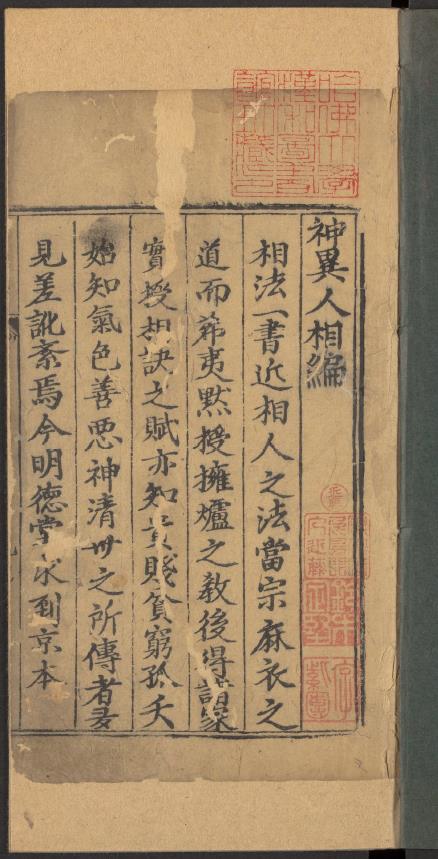 神異人相編
相法一書近相人之法當宗麻衣之
道而希夷黙授擁爐之教後得諸家
實授相訣之賦亦知貴賤貧窮孤夭
始知氣色善悪神清丗之所傳者多
見差訛紊焉今明德堂求到京本
哈佛大學漢和圖書館珍藏印